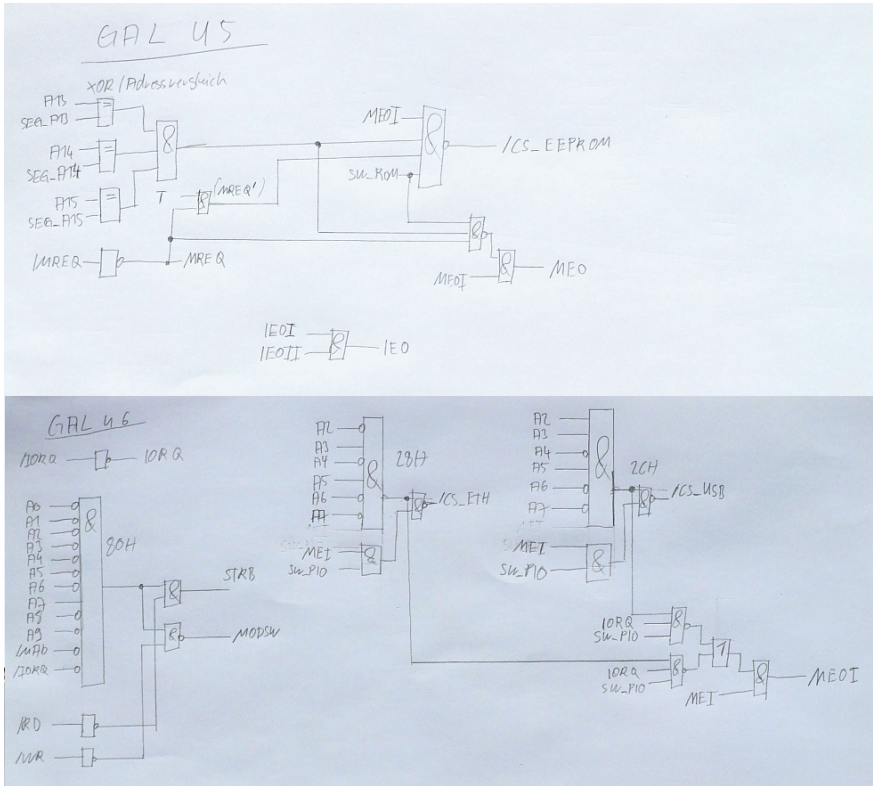 GAL U5
XOR/Adressvergleich
A13
SEG_A13
=
A14
SEG_A14
=
A15
SEG_A15
=
&
T
&
(MREQ')
/MREQ
MREQ
MEOI
&
/CS_EEPROM
SW_ROM
&
MEOI
&
MEO
IEOI
IEOII
&
IEO
GAL U6
/IORQ
IORQ
A0
A1
A2
A3
A4
A5
A6
A7
A8
A9
/IORQ
&
80H
&
STRB
&
MODSW
/RD
/WR
A2
A3
A4
A5
A6
A7
&
28H
&
/CS_ETH
MEI
SW_PIO
&
A2
A3
A4
A5
A6
A7
&
2CH
&
/CS_USB
MEI
SW_PIO
&
IORQ
SW_PIO
&
IORQ
SW_PIO
&
1
MEI
&
MEOI